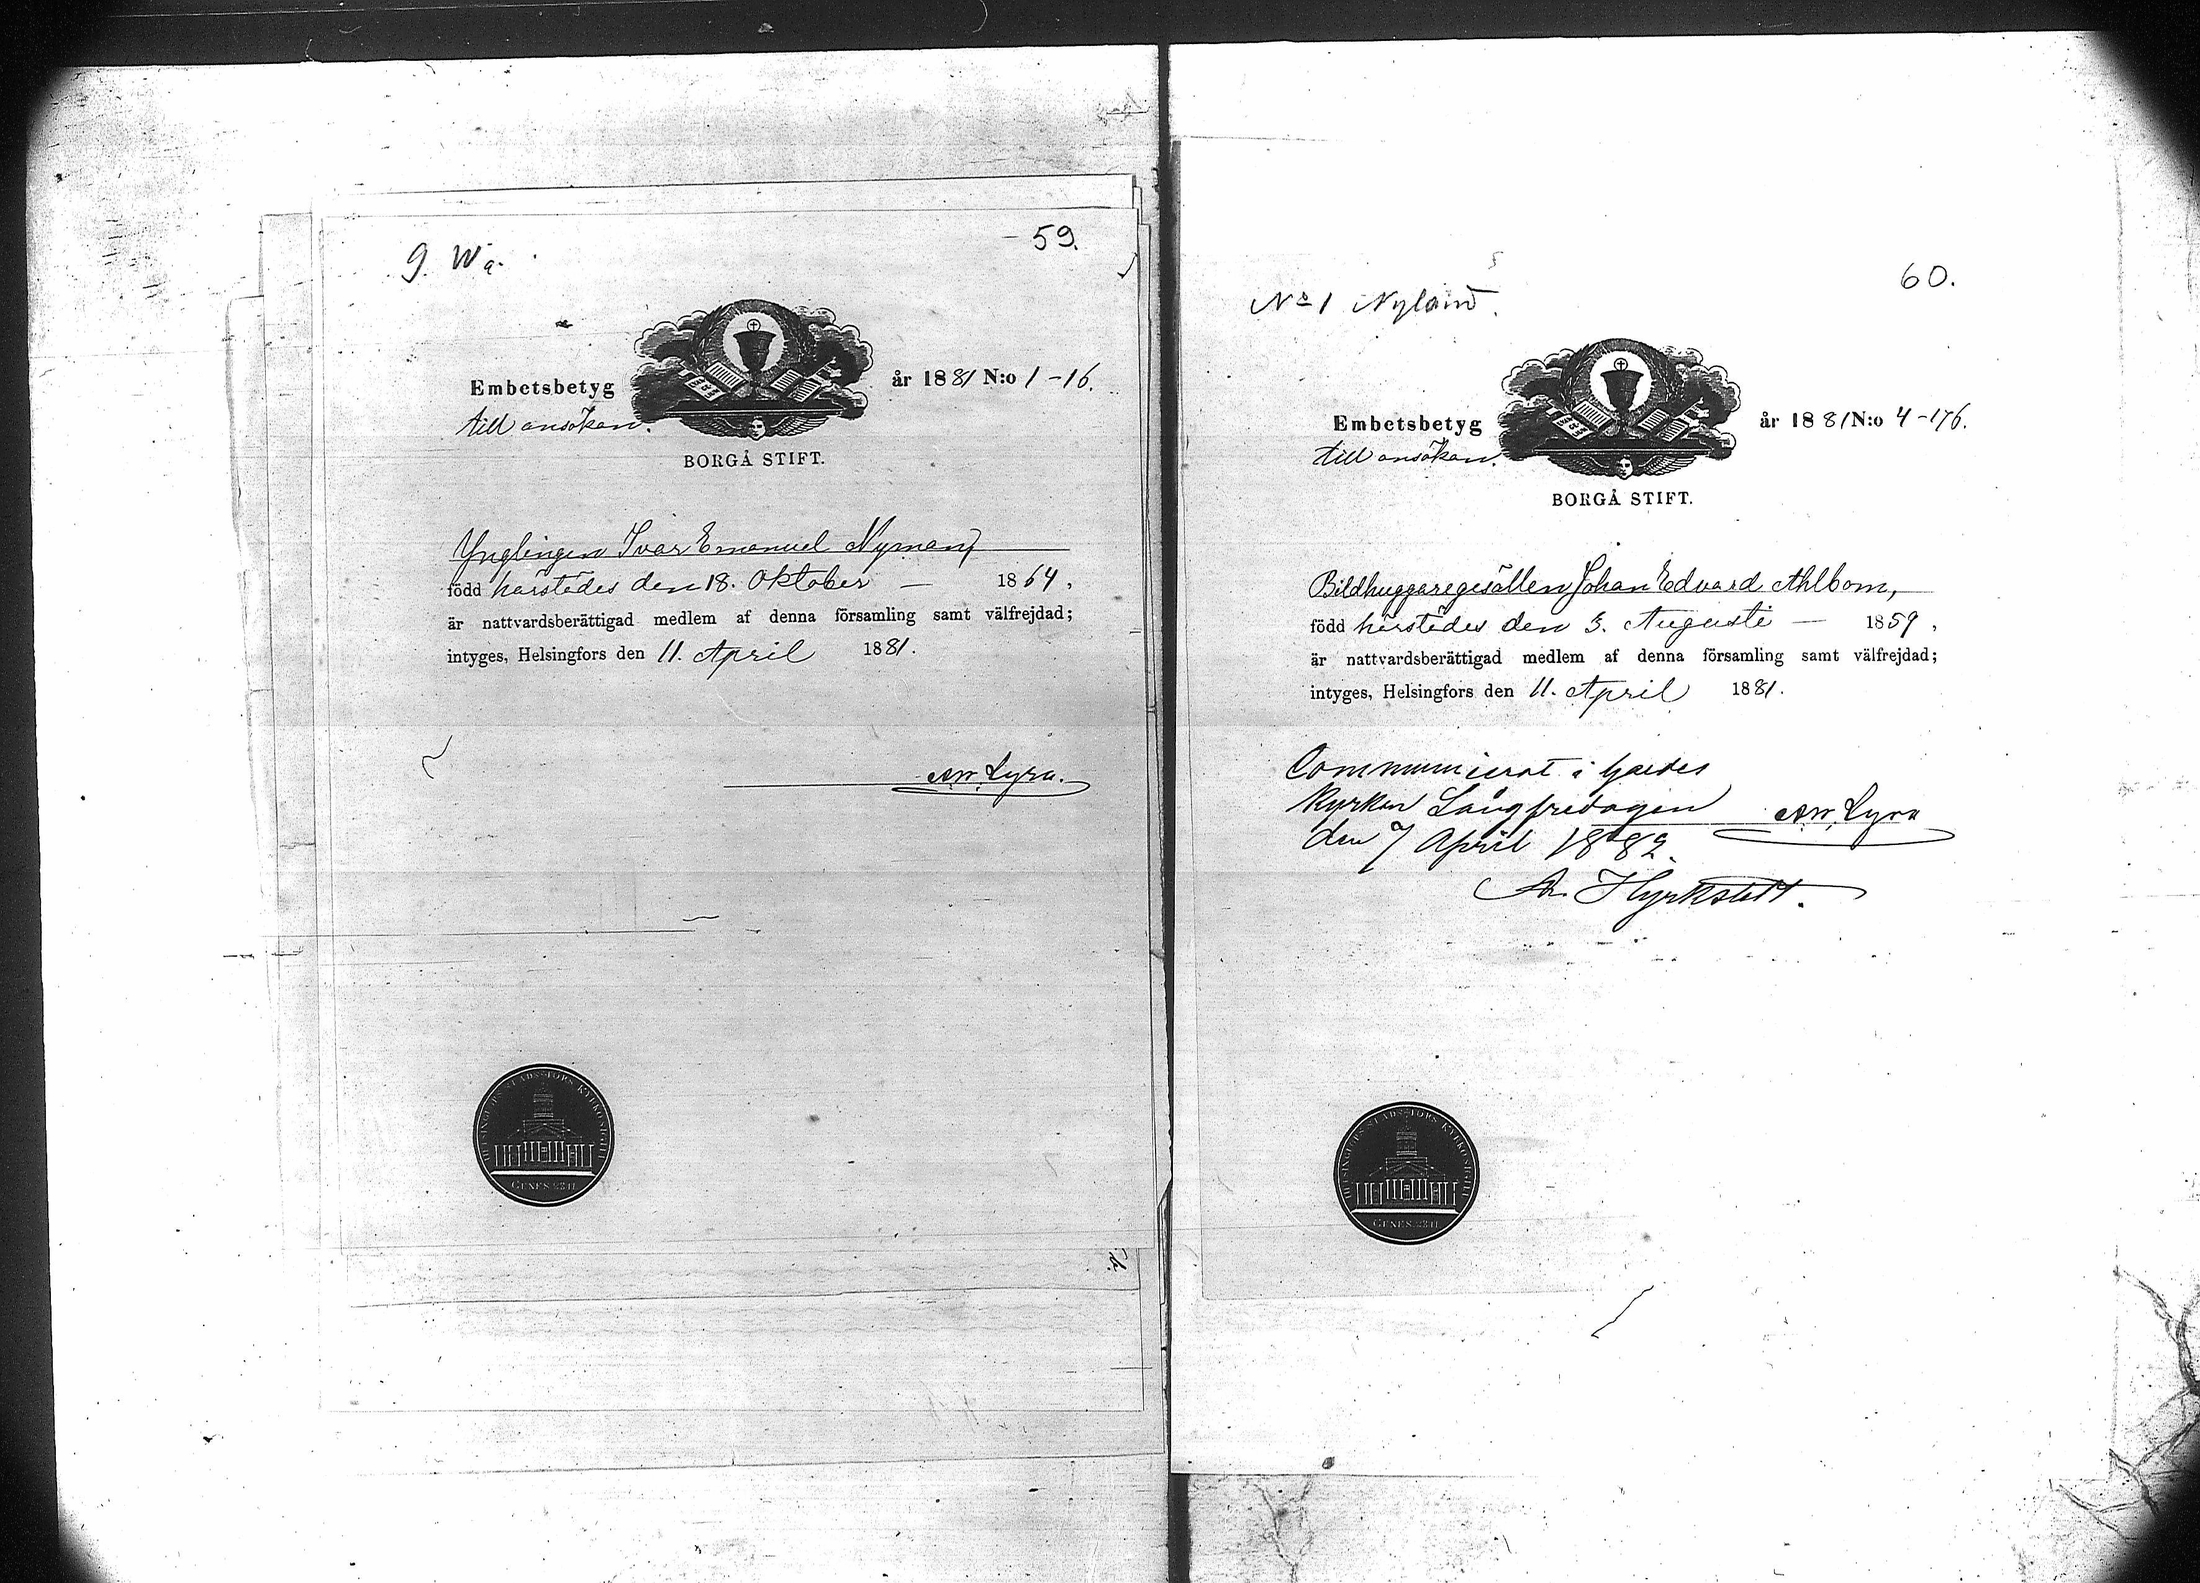 59.
9. Wa.
Embetsbetyg år 1881 N:o 1-16.
till ansökan.
BORGÅ STIFT.
Ynglingen Ivar Emanuel Nyman,
född härstädes den 18. Oktober — 1864,
är nattvardsberättigad medlem af denna församling samt välfrejdad;
intyges, Helsingfors den 11. April 1881.
AW. Lyra.
HELSINGFORS STADS KYRKOSIGILL
GENES. 28:17
60.
No 1 Nyland.
Embetsbetyg år 1881 N:o 4-176.
till ansökan.
BORGÅ STIFT.
Bildhuggaregesällen Johan Edvard Ahlbom,
född härstädes den 3. Augusti — 1859,
är nattvardsberättigad medlem af denna församling samt välfrejdad;
intyges, Helsingfors den 11. April 1881.
Communicerat i Gardes
kyrkan Långfredagen
AW. Lyra
den 7 April 1882.
Hyrkstedt.
GENES. 28:17